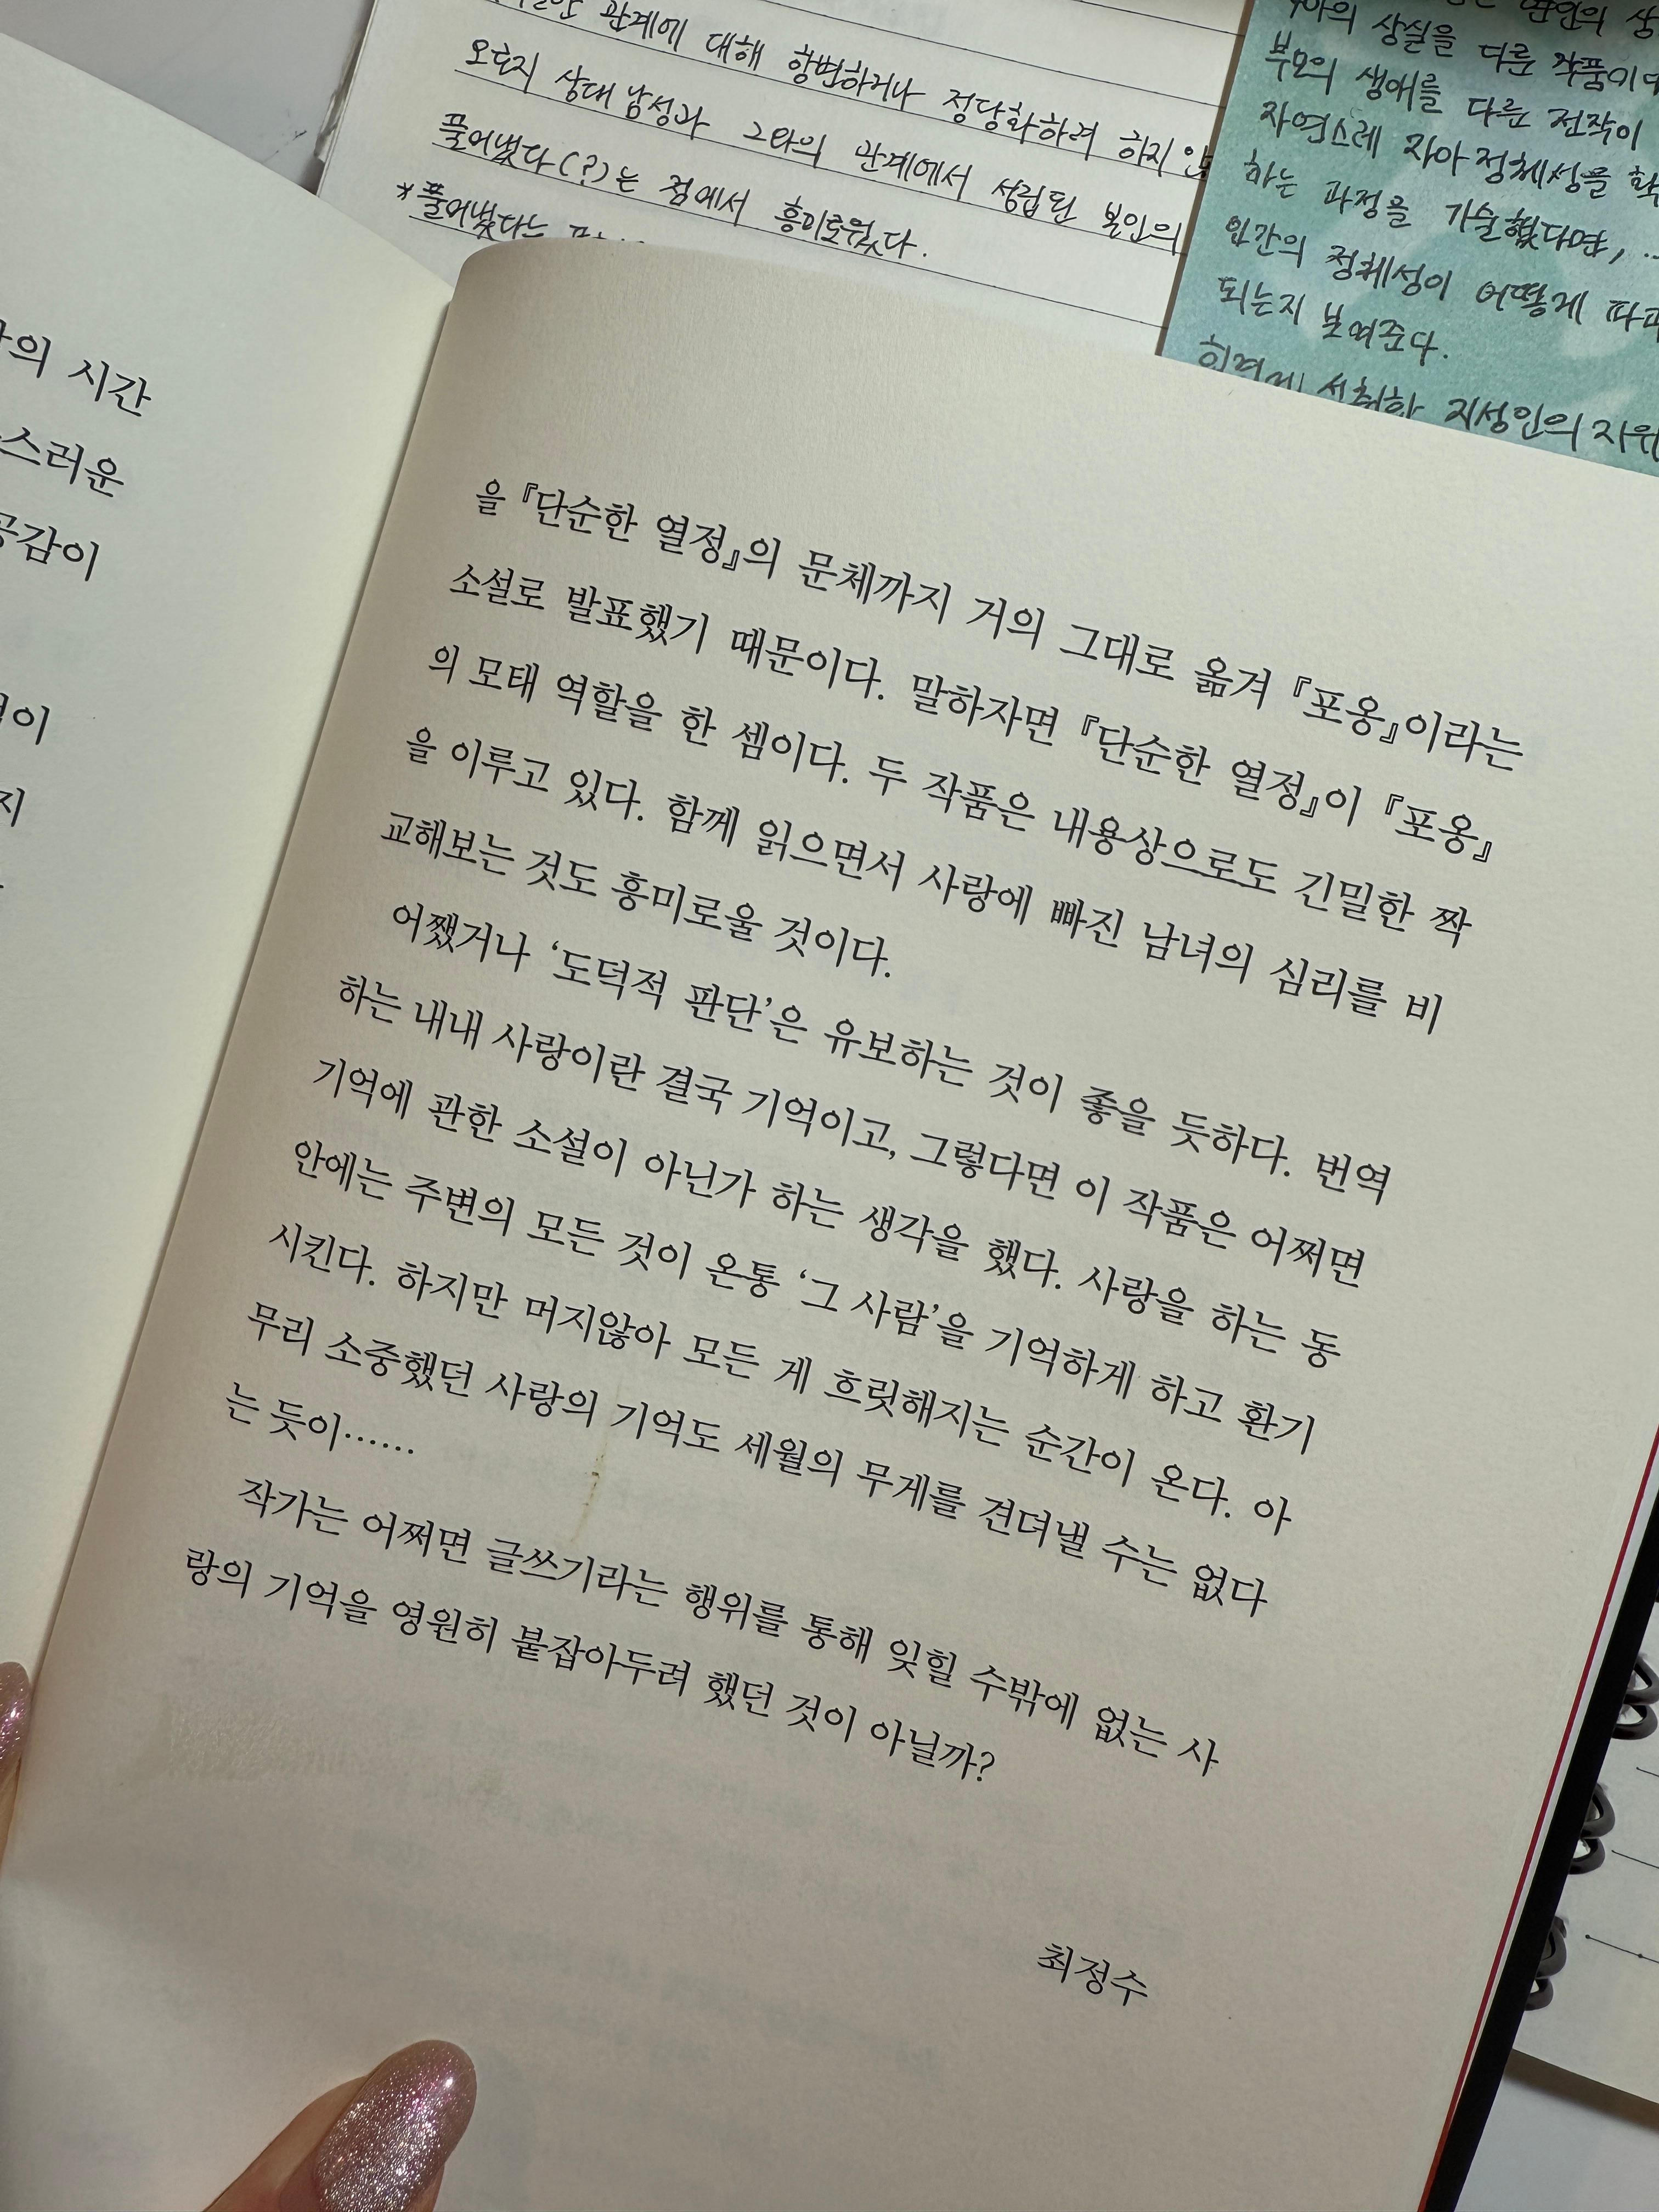 관계에 대해 항변하거나 정당화하려 하지
오로지 상대 남성과 그와의 관계에서 성립된 본인의
풀어냈다(?)는 점에서 흥미로웠다.
*풀어냈다는
상실을 다룬 작품이
부모의 생애를 다룬 전작이
자연스레 자아 정체성을
하는 과정을 기술했다면,
인간의 정체성이 어떻게
되는지 보여준다.
지성인의
시간
스러운
공감이
을 『단순한 열정』의 문체까지 거의 그대로 옮겨 『포옹』이라는
소설로 발표했기 때문이다. 말하자면 『단순한 열정』이 『포옹』
의 모태 역할을 한 셈이다. 두 작품은 내용상으로도 긴밀한 짝
을 이루고 있다. 함께 읽으면서 사랑에 빠진 남녀의 심리를 비
교해보는 것도 흥미로울 것이다.
어쨌거나 ‘도덕적 판단’은 유보하는 것이 좋을 듯하다. 번역
하는 내내 사랑이란 결국 기억이고, 그렇다면 이 작품은 어쩌면
기억에 관한 소설이 아닌가 하는 생각을 했다. 사랑을 하는 동
안에는 주변의 모든 것이 온통 ‘그 사람’을 기억하게 하고 환기
시킨다. 하지만 머지않아 모든 게 흐릿해지는 순간이 온다. 아
무리 소중했던 사랑의 기억도 세월의 무게를 견뎌낼 수는 없다
는 듯이……
작가는 어쩌면 글쓰기라는 행위를 통해 잊힐 수밖에 없는 사
랑의 기억을 영원히 붙잡아두려 했던 것이 아닐까?
최정수